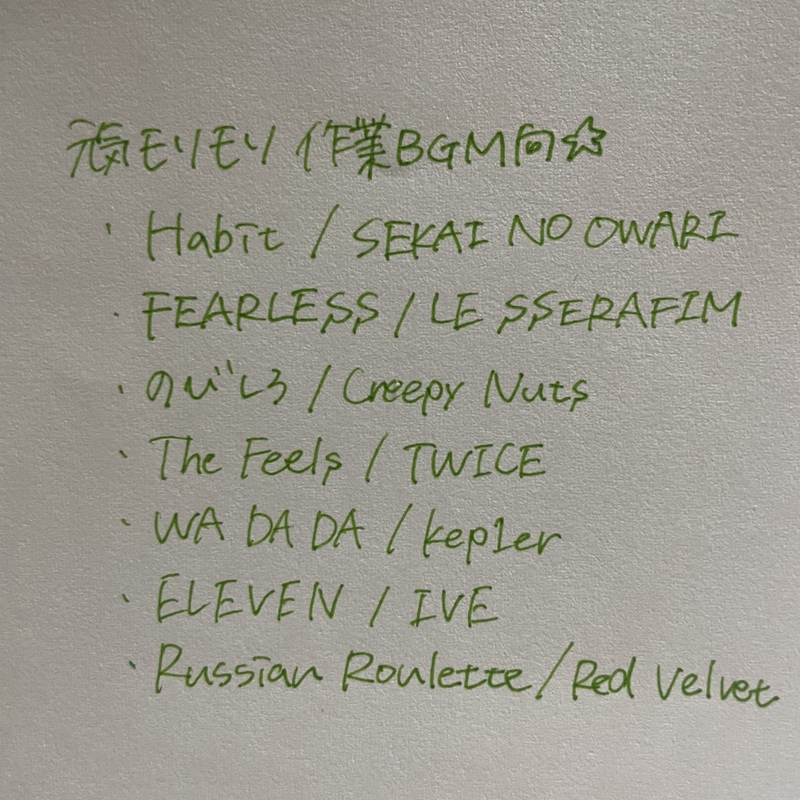 元気モリモリ 作業BGM向☆
・Habit / SEKAI NO OWARI
・FEARLESS / LE SSERAFIM
・のびしろ / Creepy Nuts
・The Feels / TWICE
・WA DA DA / kep1er
・ELEVEN / IVE
・Russian Roulette / Red Velvet